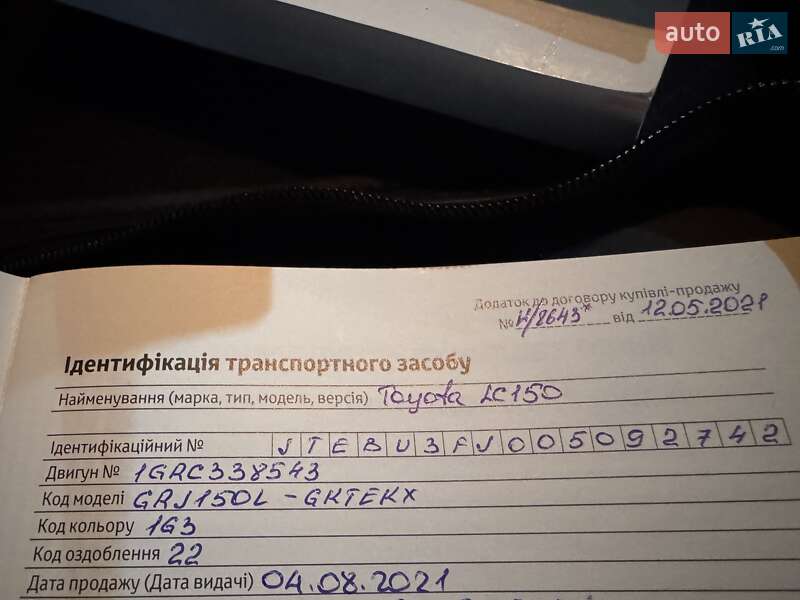 auto RIA .com
Додаток до договору купівлі-продажу
№ И/8643* від 12.05.2021
Ідентифікація транспортного засобу
Найменування (марка, тип, модель, версія) Toyota LC150
Ідентифікаційний № JTEBU3FJ005092742
Двигун № 1GRC338543
Код моделі GRJ150L-GKTEKX
Код кольору 1G3
Код оздоблення 22
Дата продажу (Дата видачі) 04.08.2021